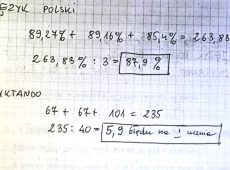 JĘZYK POLSKI
89,27% + 89,16% + 85,4% = 263,83
263,83% : 3 = 87,9%
KTANDO
67 + 67 + 101 = 235
235 : 40 = 5,9 błędu na 1 ucznia